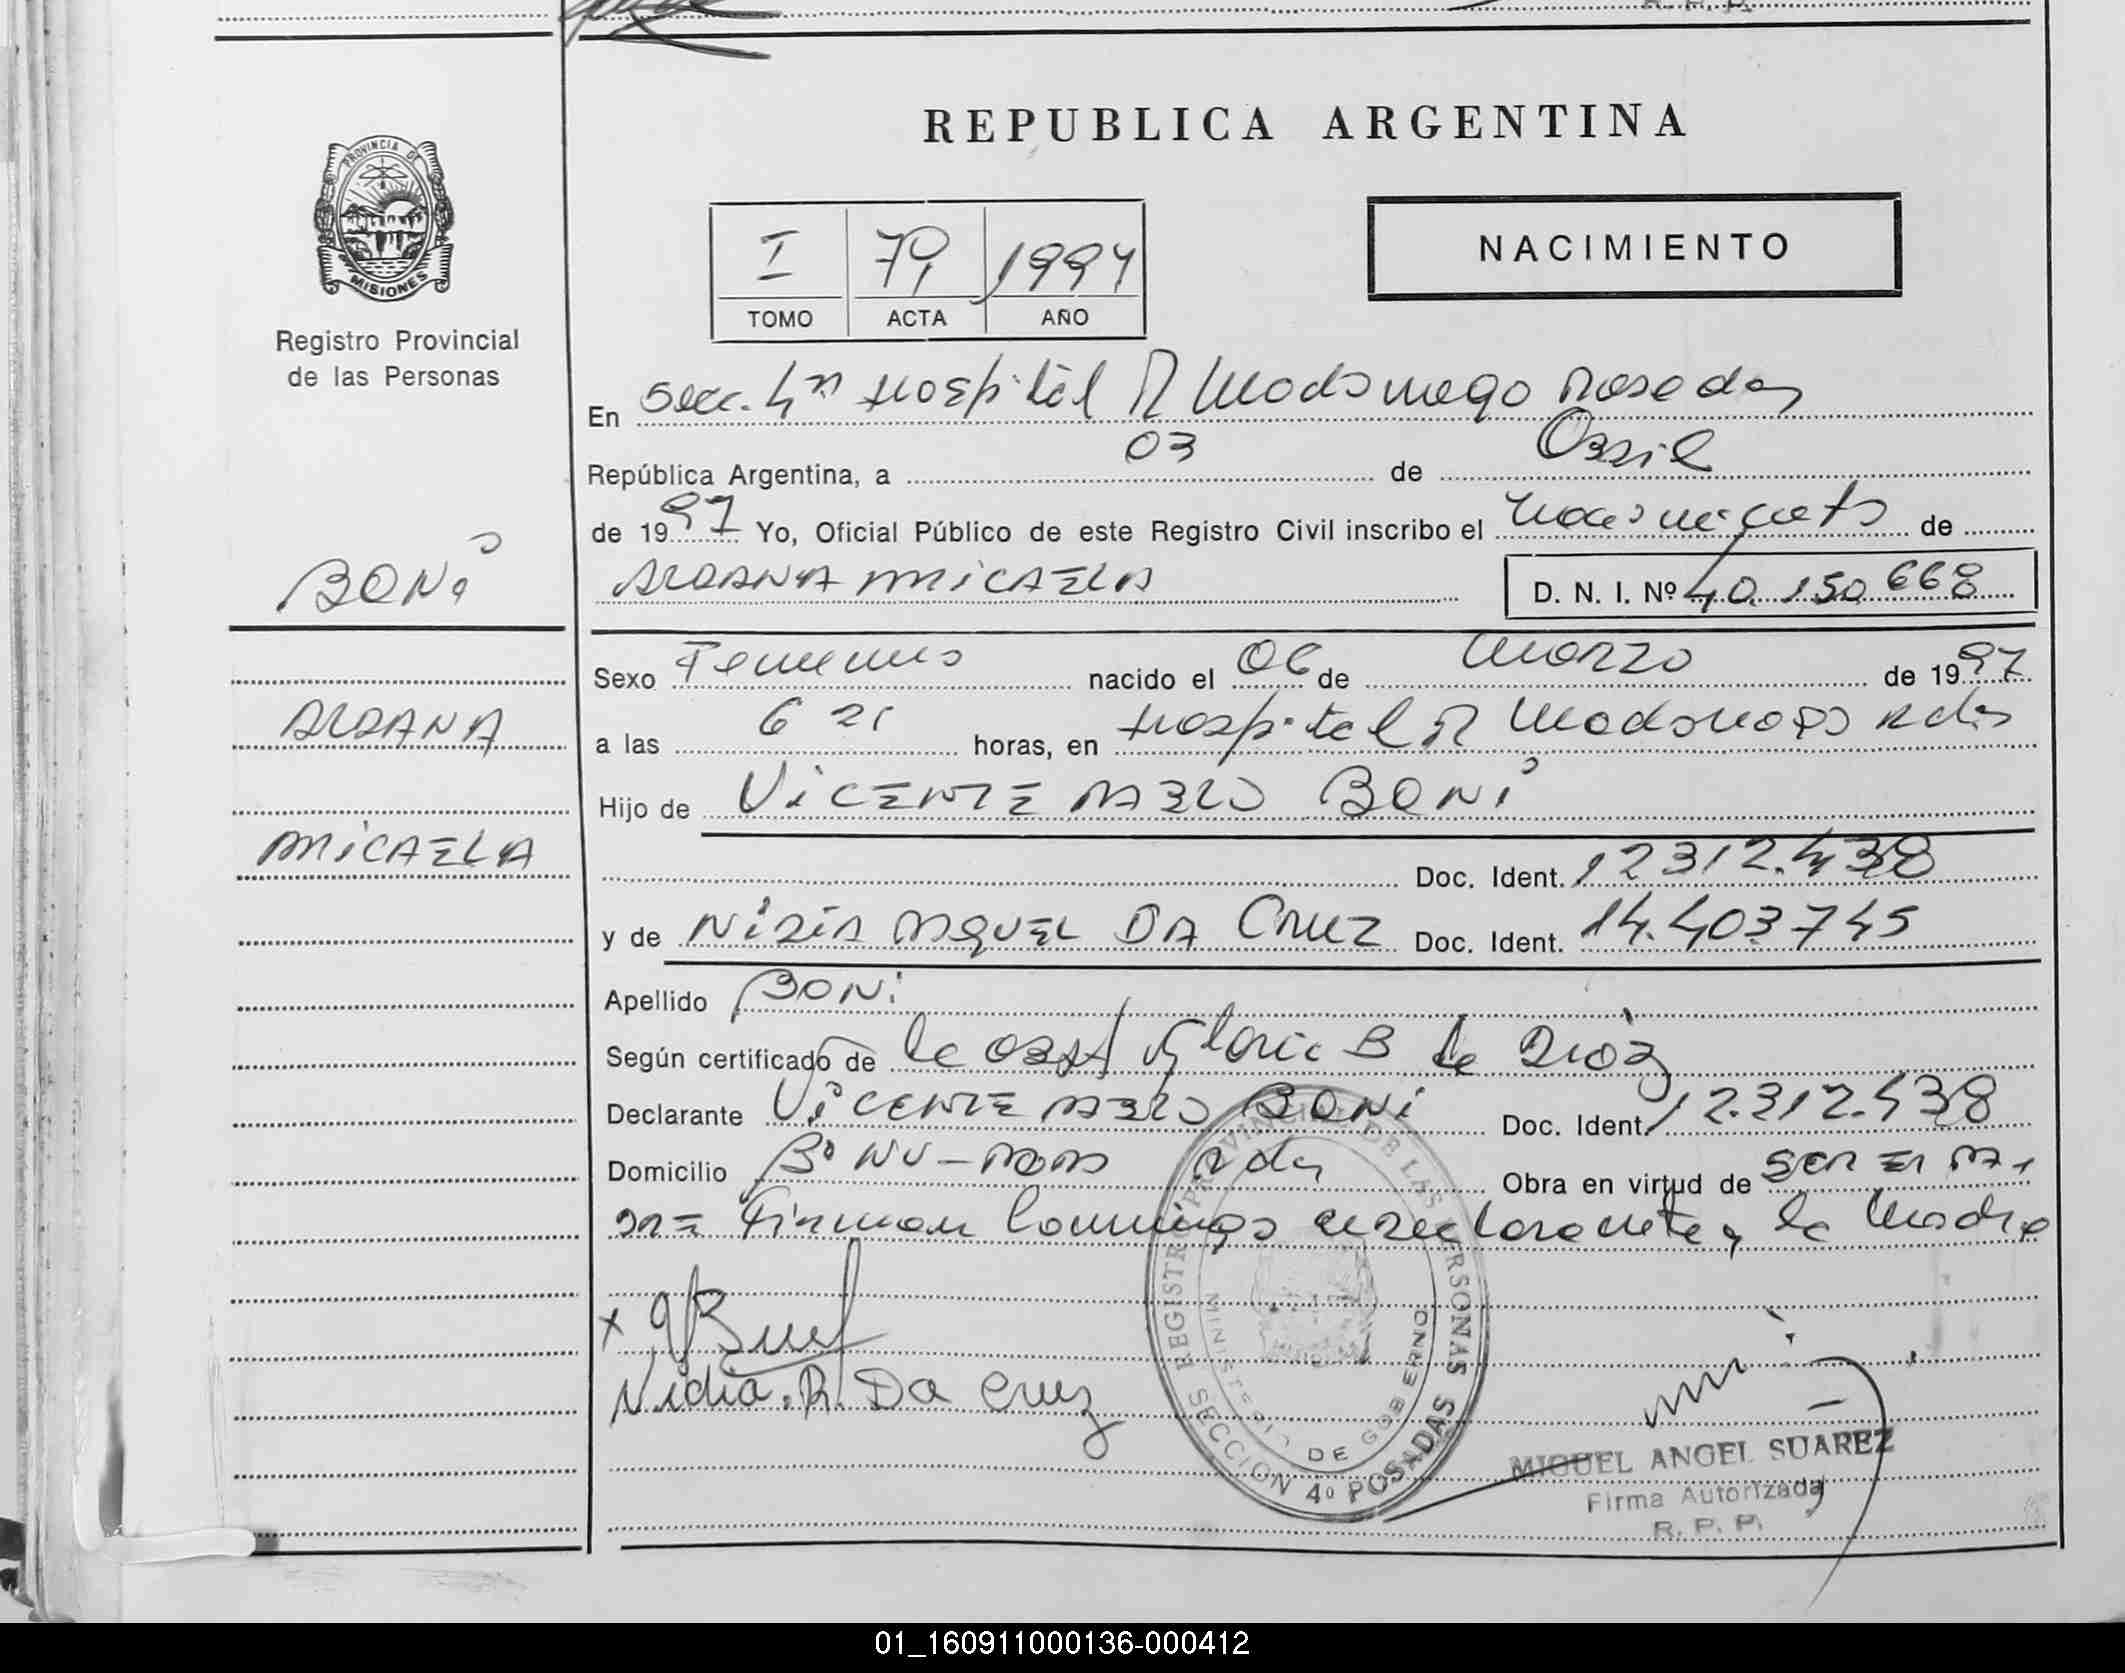 R. P. P.
REPUBLICA ARGENTINA
PROVINCIA DE
MISIONES
Registro Provincial
de las Personas
NACIMIENTO
I 79 1997
TOMO ACTA AÑO
En Secc. 4ta Hospital R Madariaga Posadas
República Argentina, a 03 de Abril
de 1997 Yo, Oficial Público de este Registro Civil inscribo el nacimiento de
BONi
ALDANA MiCAELA D. N. I. Nº 40.150.668
Sexo Femenino nacido el 06 de Marzo de 1997
ALDANA
a las 6 21 horas, en Hospital R Madariaga Pdas
Hijo de ViCENTE PABLO BONi
MiCAELA
Doc. Ident. 12312.438
y de NiDiA RAQUEL DA CRUZ Doc. Ident. 14.403.745
Apellido BONi
Según certificado de la Obst Gloria B de Díaz
Declarante ViCENTE PABLO BONi Doc. Ident. 12.312.438
Domicilio Bº NU-POR Pdas Obra en virtud de SER EL PA-
DRE Firman conmigo el declarante y la Madre
x
Nidia. R. Da Cruz
REGISTRO PROVINCIAL DE LAS PERSONAS
MINISTERIO DE GOBIERNO
SECCION 4º POSADAS
MIGUEL ANGEL SUAREZ
Firma Autorizada
R. P. P.
01_160911000136-000412